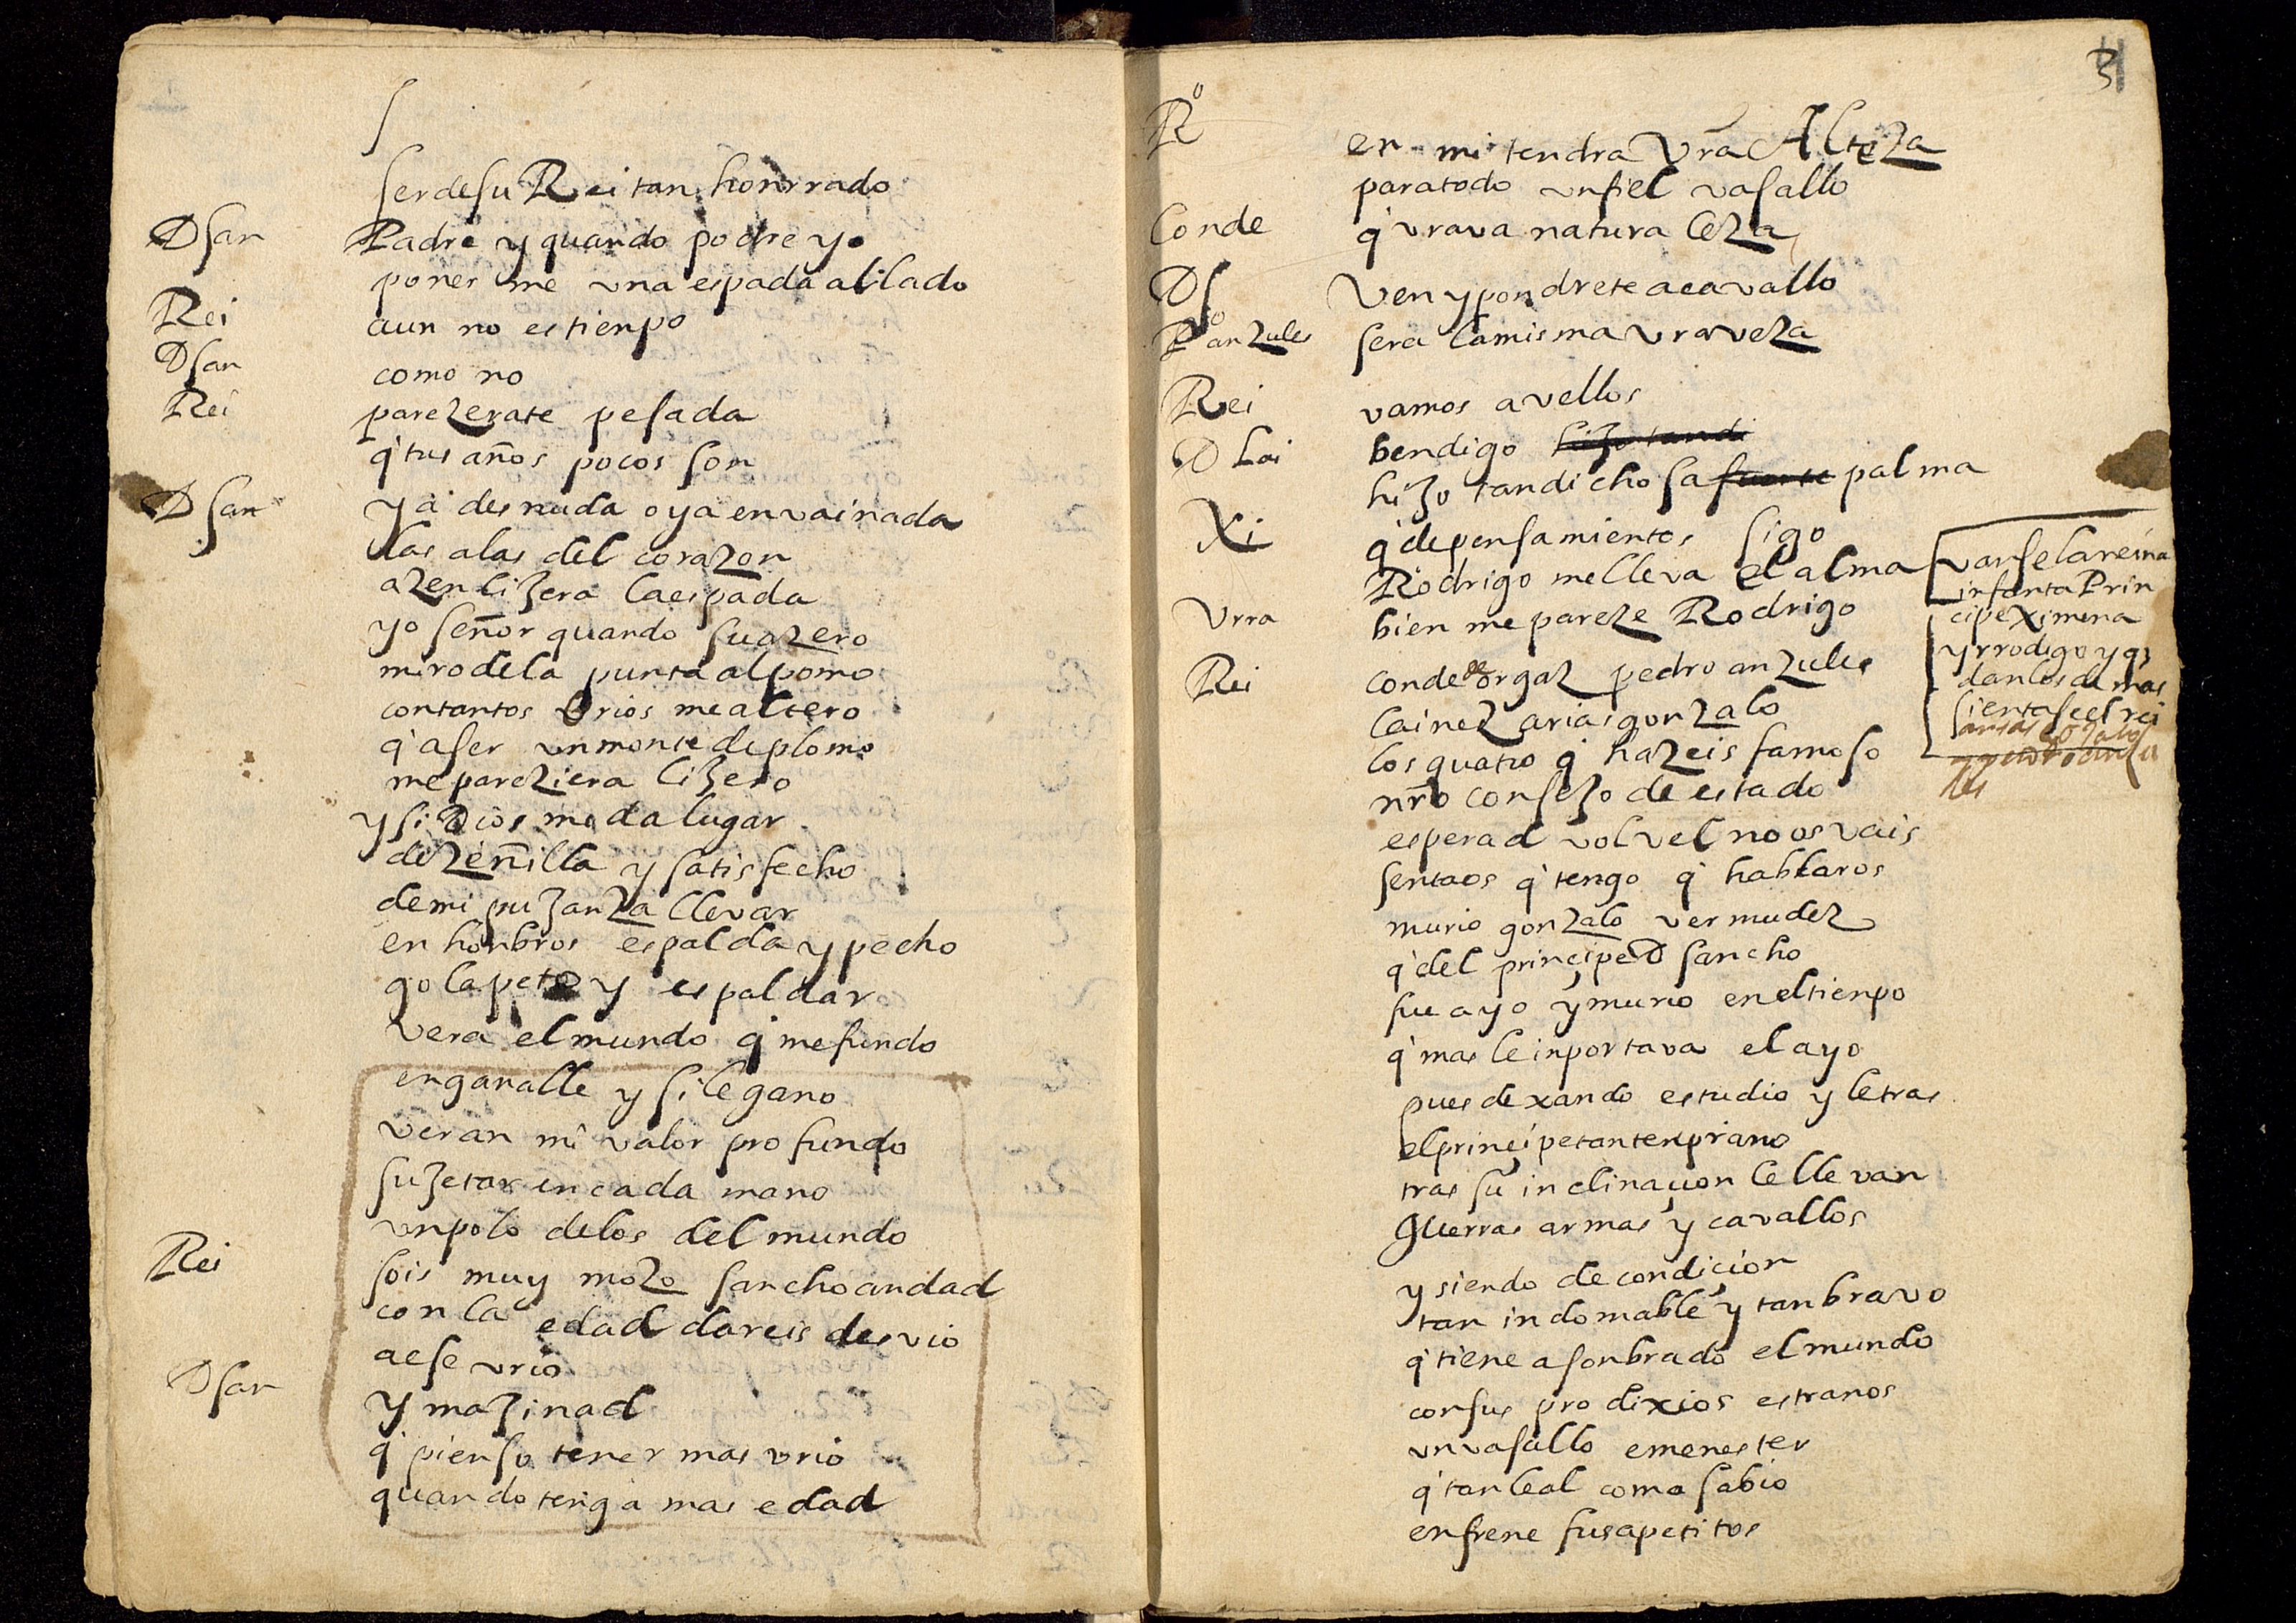 ser de su Rei tan honrrado
D san Padre y quando podre yo
poner me una espada al lado
Rei aun no es tienpo
D san como no
Rei parezerate pesada
q' tus años pocos son
D san ya desnuda o ya envainada
las alas del corazon
azen lijera la espada
yo señor quando su azero
miro de la punta al pomo
con tantos brios me altero
q' a ser un monte de plomo
me pareziera lijero
y si Dios me da lugar
de zeñilla y satisfecho
de mi pujanza llevar
en honbros espalda y pecho
gola peto y espaldar
vera el mundo q' me fundo
en ganalle y si le gano
veran mi valor profundo
sujetar en cada mano
un polo de los del mundo
Rei sois muy mozo sancho andad
con la edad dareis desvio
a ese vrio
D san Ymajinad
q' pienso tener mas vrio
quando tenga mas edad
3
Rº en mi tendra Vra Alteza
para todo un fiel vasallo
Conde q' vrava naturaleza
D s Ven y pondrete a cavallo
Pº anzules sera la misma vraveza
Rei vamos a vellos
D Lai bendigo hijo tandi
hijo tan dichosa fuerte palma
Xi q' de pensamientos sigo
Rodrigo me lleva el alma
Urra bien me pareze Rodrigo
vanse la reina
infanta Prin
cipe Ximena
y rrodigo y q
dan los demas
sientase el rei
Rei conde de orgaz pedro anzules
lainez arias gonzalo
los quatro q' hazeis famoso
nro consejo de estado
esperad volvel no os vais
sentaos q' tengo q' hablaros
murio gonzalo vermudez
q' del principe D sancho
fue ayo y murio en el tienpo
q' mas le inportava el ayo
pues dexando estudio y letras
el principe tan tenprano
tras su inclinacion le llevan
guerras armas y cavallos
y siendo de condicion
tan indomable y tan bravo
q' tiene asonbrado el mundo
con sus prodixios estranos
un vasallo e menester
q' tan leal como sabio
enfrene sus apetitos